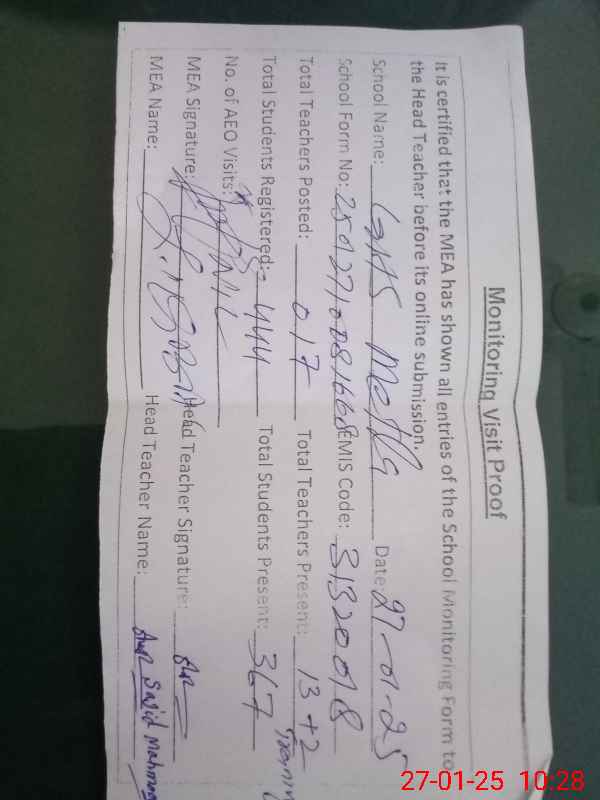 Monitoring Visit Proof
It is certified that the MEA has shown all entries of the School Monitoring Form to
the Head Teacher before its online submission.
School Name: GHS Date: 27-01-25
School Form No: EMIS Code: 31320018
Total Teachers Posted: 017 Total Teachers Present: 13+2
Total Students Registered: 444 Total Students Present: 367
No. of AEO Visits: NIL
MEA Signature: Head Teacher Signature:
MEA Name: Head Teacher Name: Sajid Mahmood
27-01-25 10:28